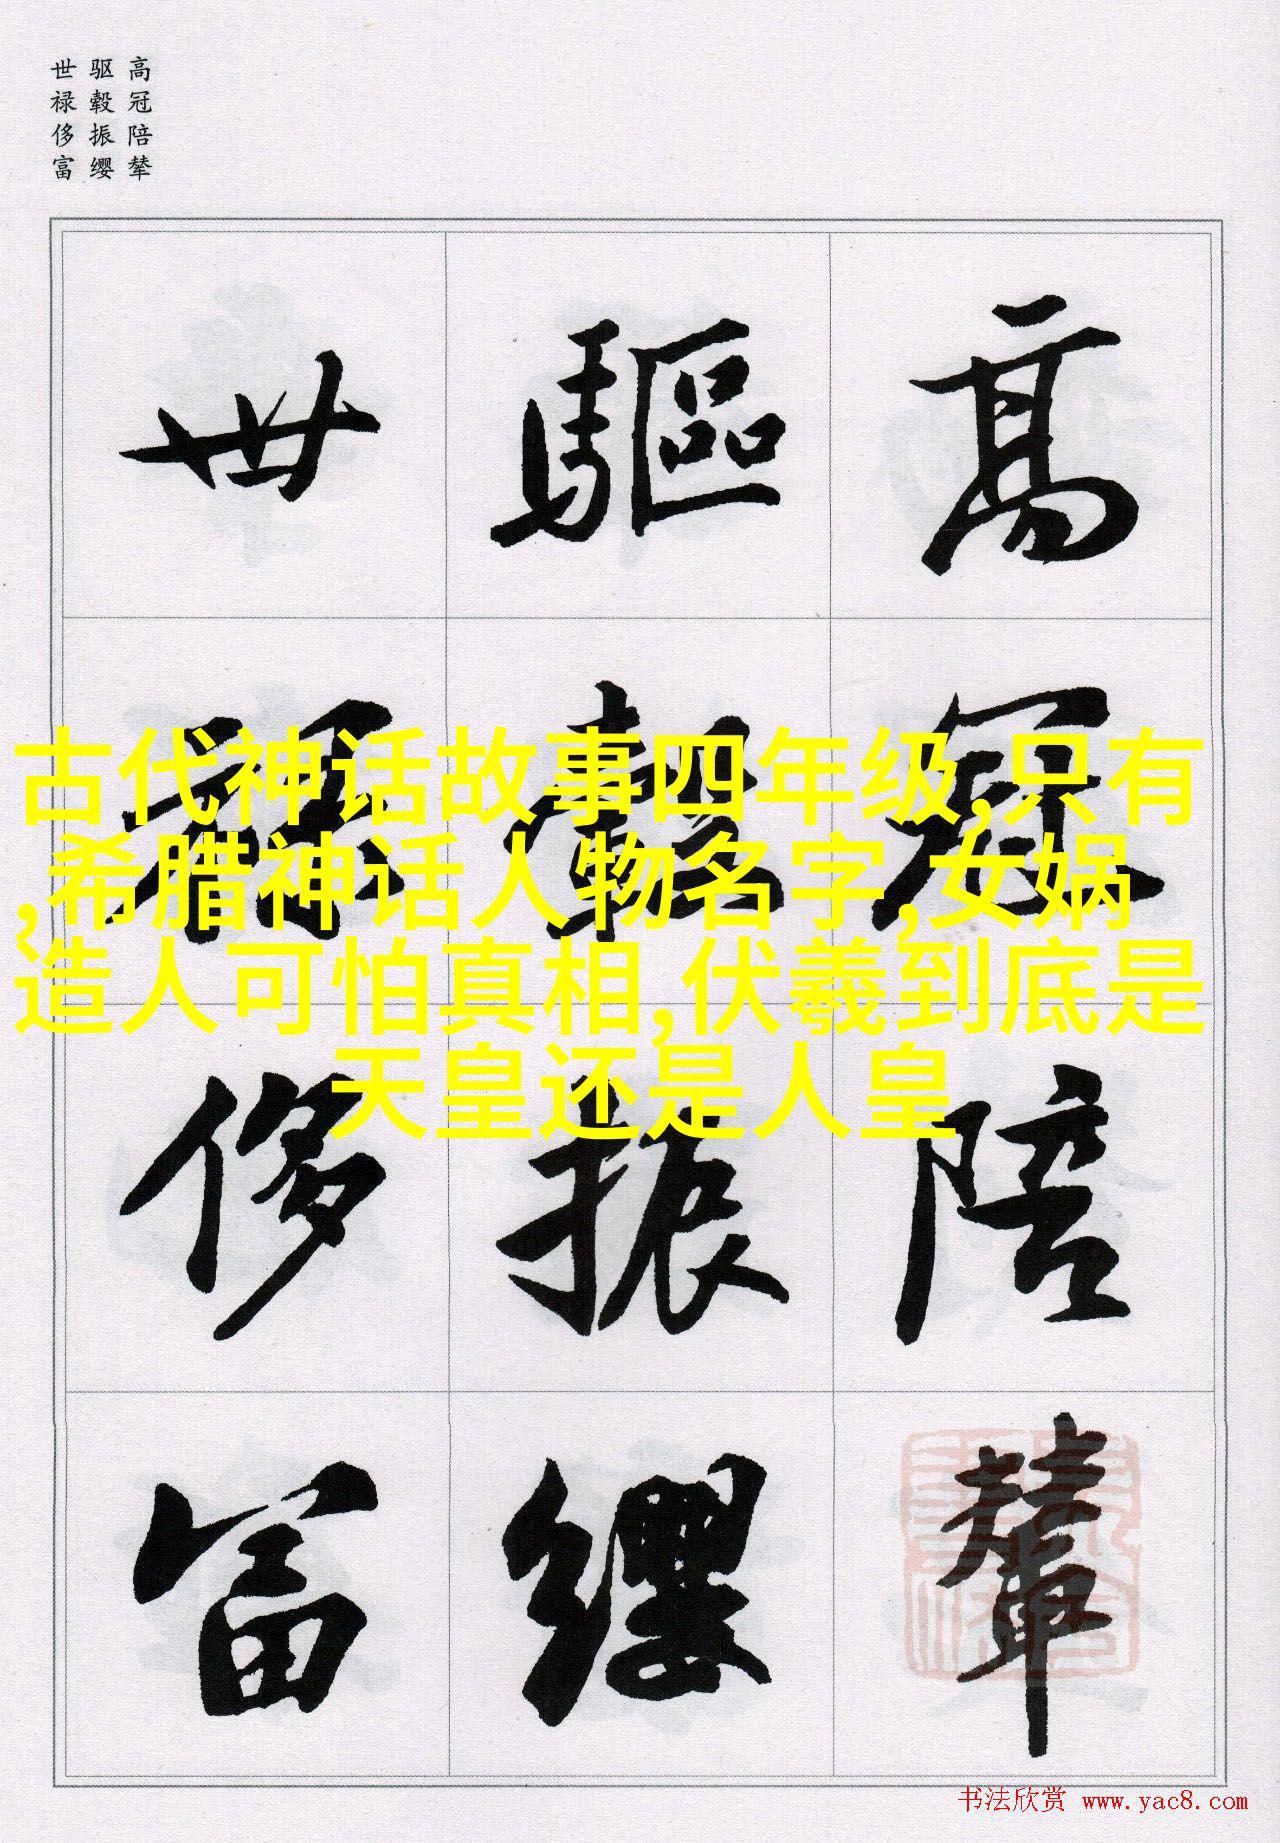 高冠陪辇
驱毂振缨
世禄侈富
高冠陪輦
驅轂振纓
世禄侈富
古代神话故事四年级,只有
,希腊神话人物名字,女娲
造人可怕真相,伏羲到底是
天皇还是人皇
书法欣赏 www.yac8.com